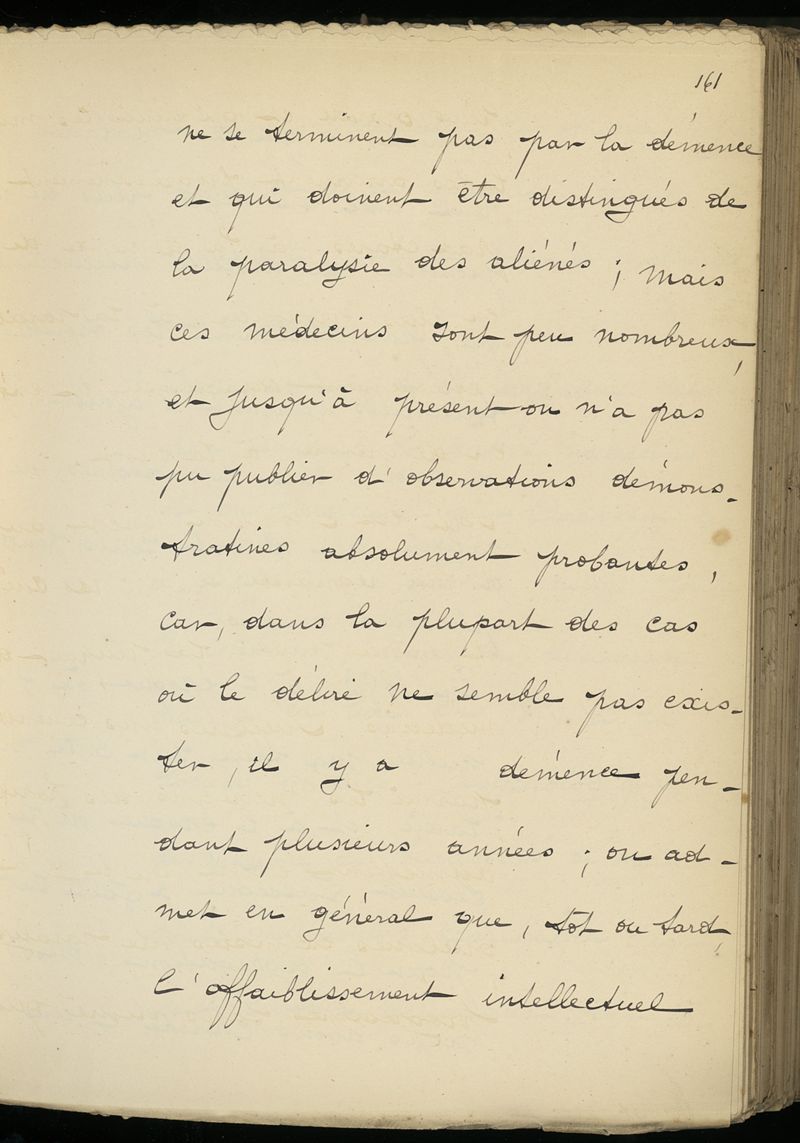 161
ne se terminent pas par la démence
et qui doivent être distingués de
la paralysie des aliénés ; mais
ces médecins sont peu nombreux,
et jusqu'à présent on n'a pas
pu publier d'observations démons-
tratives absolument probantes,
car, dans la plupart des cas
où le délire ne semble pas exis-
ter, il y a démence pen-
dant plusieurs années ; on ad-
met en général que, tôt ou tard,
l'affaiblissement intellectuel